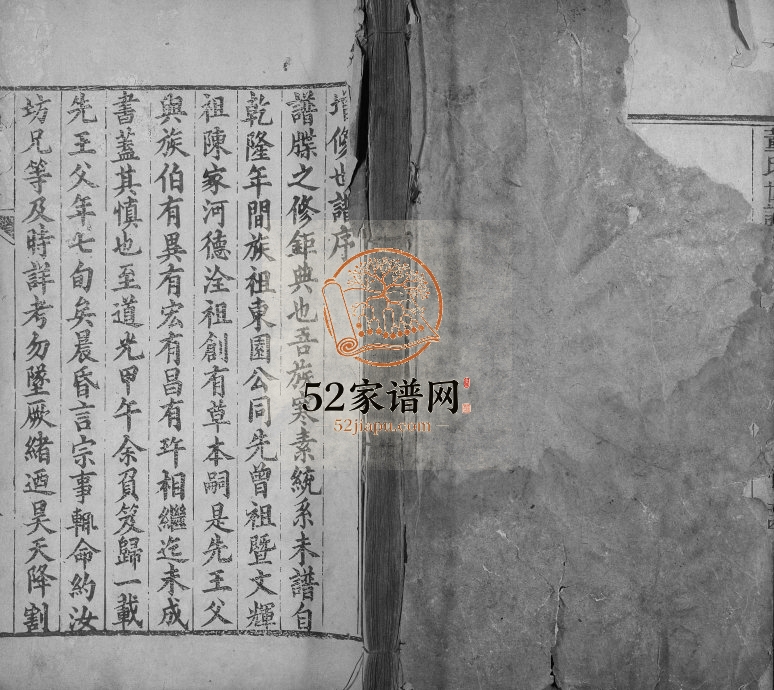 增修世譜序
譜牒之修鉅典也吾族寒素統系未譜自
乾隆年間族祖東園公同先曾祖暨文輝
祖陳家河德淦祖創有草本嗣是先王父
與族伯有異有宏有昌有玝相繼迄未成
書蓋其慎也至道光甲午余負笈歸一載
先王父年七旬矣晨昏言宗事輒命約汝
坊兄等及時詳考勿墜厥緒迺昊天降割
52家谱网
52jiapu.com